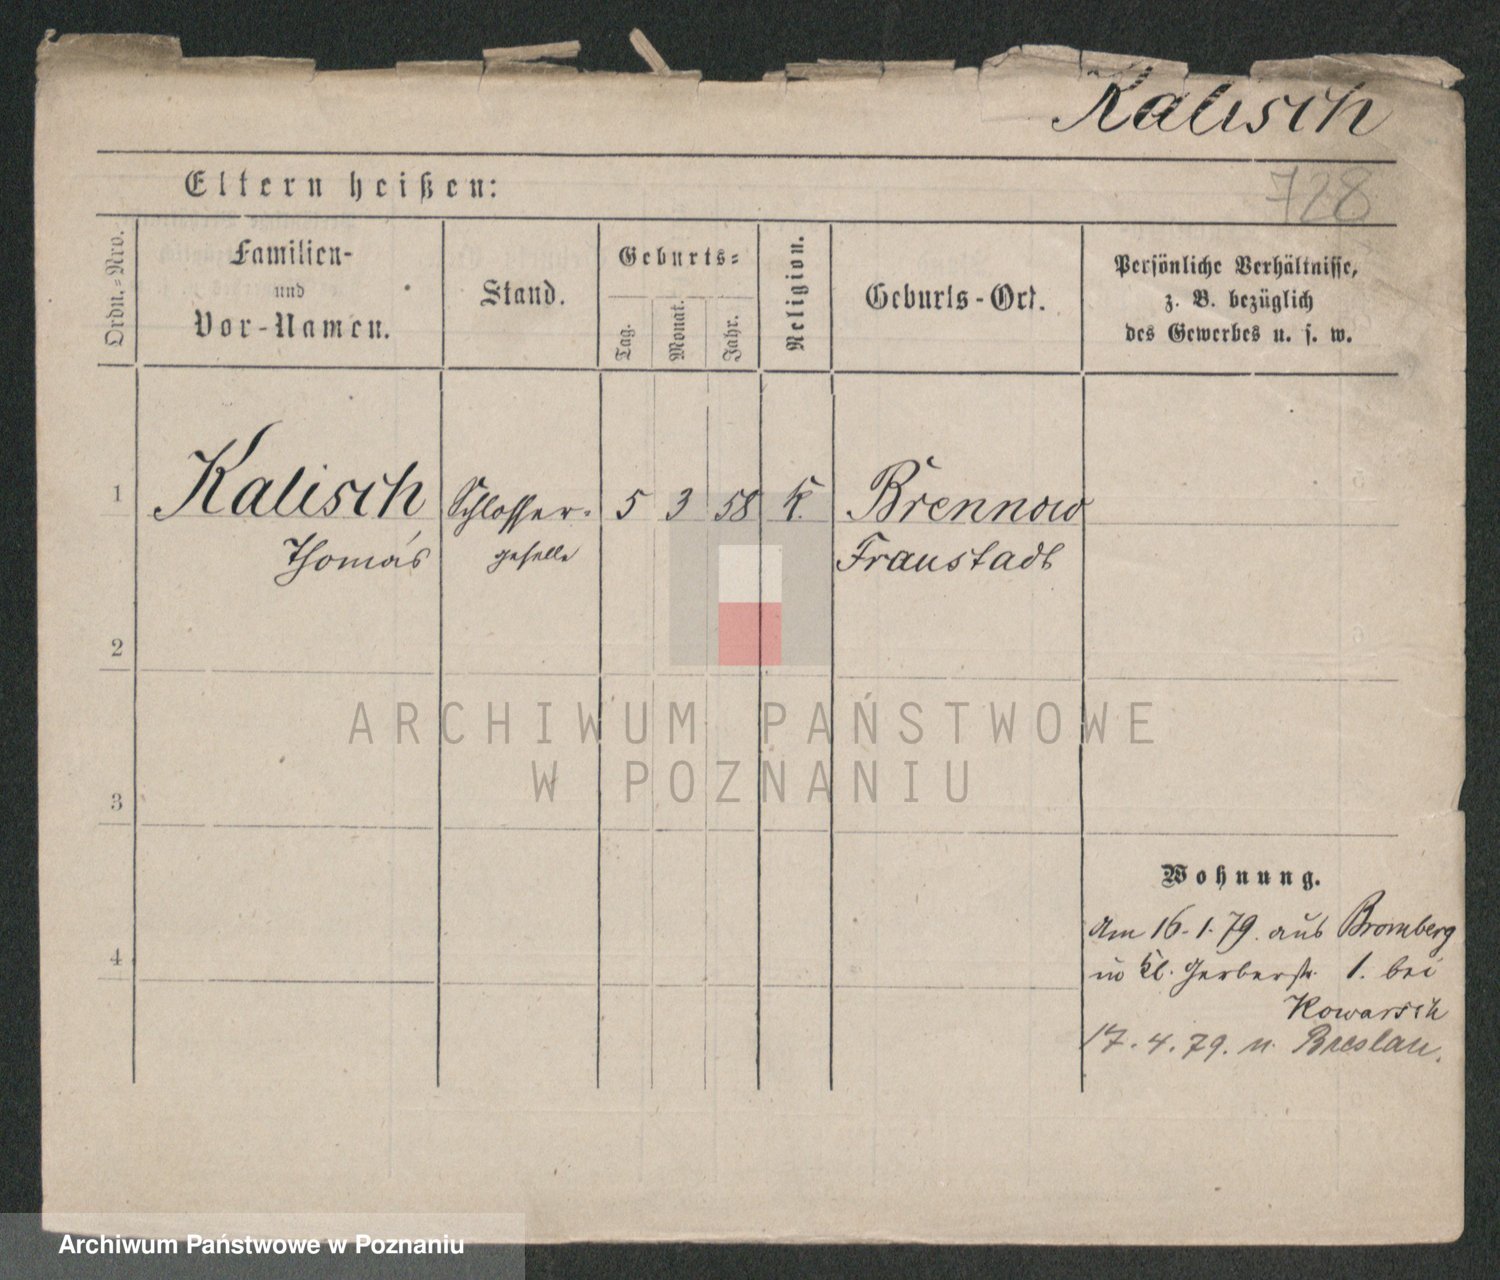 Kalisch
Eltern heißen:
728
Ordn.-Nro.
Familien-
und
Vor-Namen.
Stand.
Geburts-
Tag.
Monat.
Jahr.
Religion.
Geburts-Ort.
Persönliche Verhältnisse,
z. B. bezüglich
des Gewerbes u. s. w.
1 Kalisch Schlosser- 5 3 58 k. Brennow
Thomas geselle Fraustadt
2
ARCHIWUM PAŃSTWOWE
W POZNANIU
3
Wohnung.
Am 16.1.79. aus Bromberg
4
in Kl. Gerberstr. 1. bei
Kowarsch
17.4.79. n. Breslau.
Archiwum Państwowe w Poznaniu